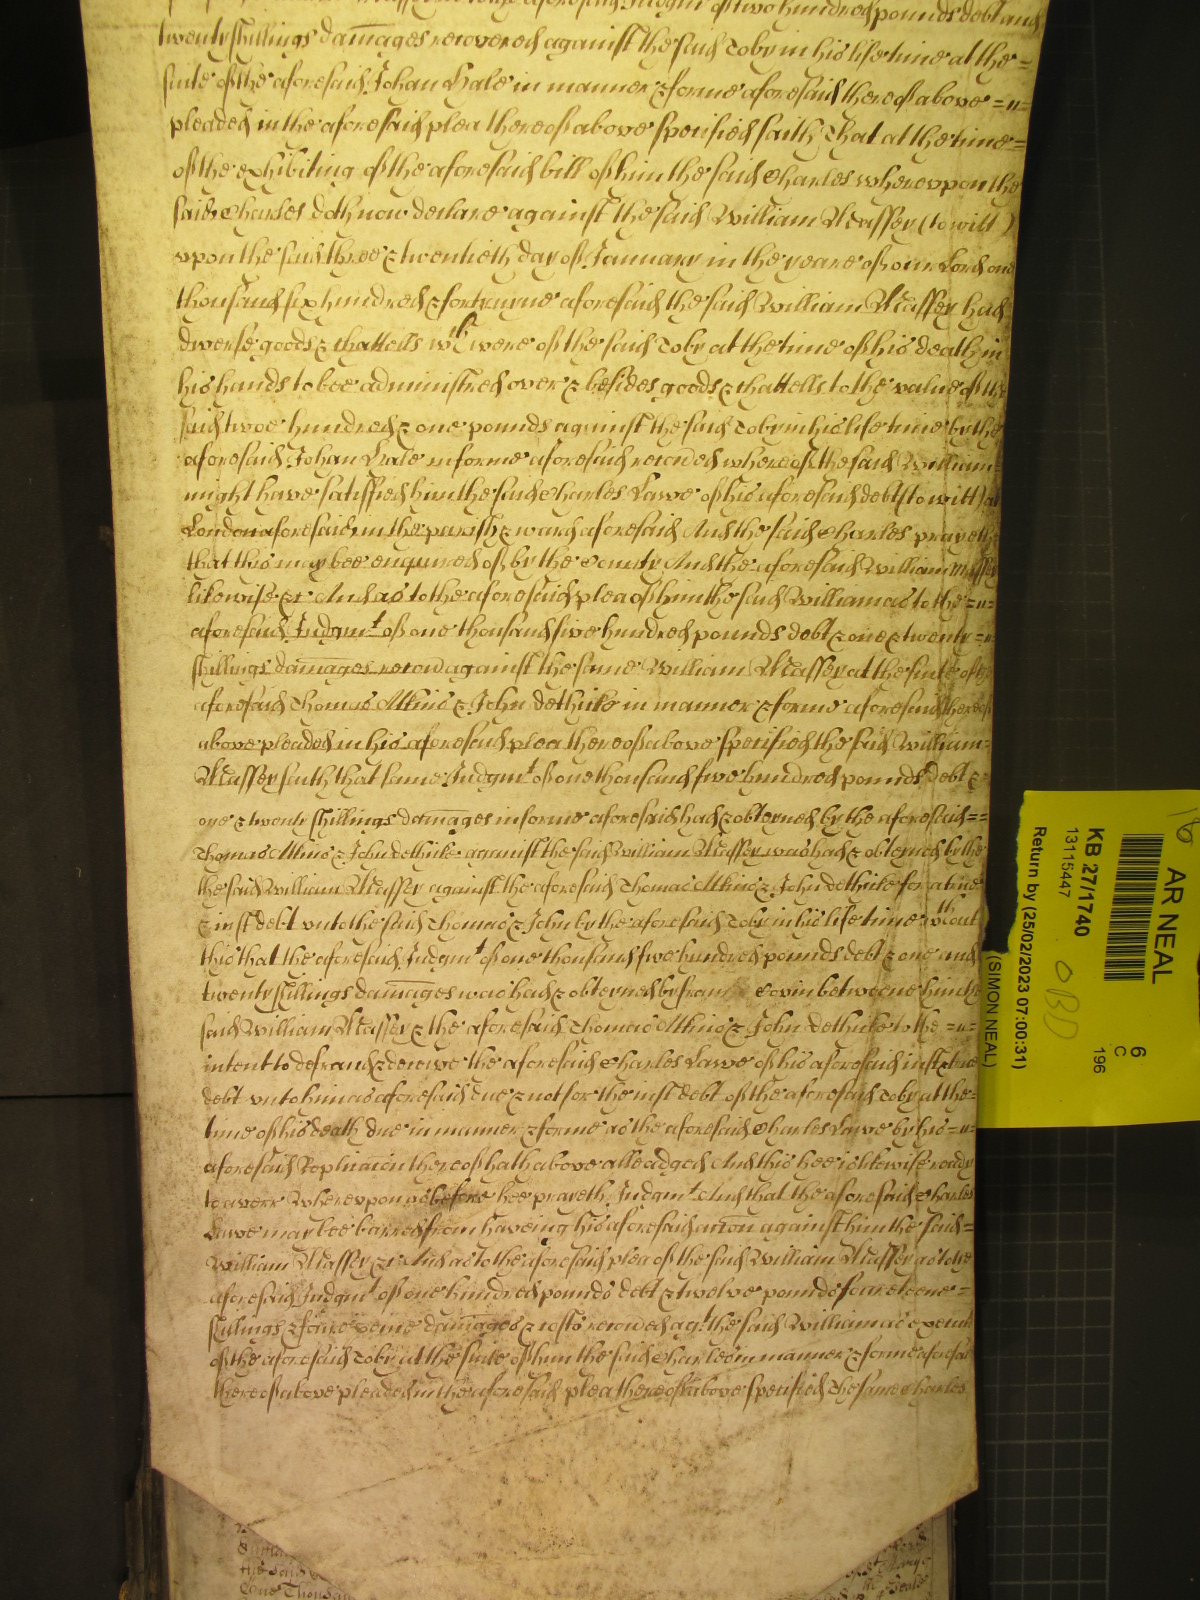 aforesaid Judgmt of two hundred pounds debt and
twenty shillings damages recovered against the said Toby in his life time at the =
suite of the aforesaid Johan Hale in manner & forme aforesaid thereof above =u=
pleaded in the aforesaid plea thereof above specified saith That at the time =
of the exhibiting of the aforesaid bill of him the said Charles wherevpon the
said Charles doth now declare against the said William Massey (to witt)
vpon the said three & twentieth day of January in the yeare of our Lord one
thousand six hundred & fortynyne aforesaid the said William Massey had
diverse goods & chattells wch were of the said Toby at the time of his death in
his hands to bee administred over & besides goods & chattells to the value of the
said twoe hundred & one pounds against the said Toby in his life time by the
aforesaid Johan Hale in forme aforesaid recoved whereof the said William =
might have satisfied him the said Charles Lawe of his aforesaid debt (to witt) at
London aforesaid in the parish & ward aforesaid And the said Charles prayeth
that this may bee enquired of by the Countrey And the aforesaid William Massey
likewise &c And as to the aforesaid plea of him the said William as to the =u=
aforesaid Judgmt of one thousand five hundred pounds debt & one & twenty =u=
shillings damages recovd against the same William Massey at the suite of the
aforesaid Thomas Atkins & John Dethicke in manner & forme aforesaid thereof
above pleaded in his aforesaid plea thereof above specified the said William =
Massey saith that same Judgmt of one thousand five hundred pounds debt & =
one & twenty shillings damages in forme aforesaid had & obteyned by the aforesaid ==
Thomas Atkins & John Dethicke against the said William Massey was had & obteyned by the
the said William Massey against the aforesaid Thomas Atkins & John Dethicke for a true
& iust debt vnto the said Thomas & John by the aforesaid Toby in his life time without
this that the aforesaid Judgmt of one thousand five hundred pounds debt & one and
twenty shillings damages was had & obteyned by fraud Covin betweene him the
said William Massey & the aforesaid Thomas Atkins & John Dethicke to the =u=
intent to defraud & deceive the aforesaid Charles Lawe of his aforesaid iust & true
debt vnto him as aforesaid due & not for the iust debt of the aforesaid Toby at the =
time of his death due in manner & forme as the aforesaid Charles Lawe by his =u=
aforesaid Replicacion thereof hath above alleadged And this hee is likewise ready
to averr Wherevpon as before hee prayeth Judgmt And that the aforesaid Charles
Lawe may bee barred from haveing his aforesaid accion against him the said =
William Massey &c And as to the aforesaid plea of the said William Massey as to the
aforesaid Judgmt of one hundred pounds debt & twelve pounds foureteene =
shillings & foure pence damages & costs recoved agt the said William as executr
of the aforesaid Toby at the suite of him the said Charles in manner & forme aforesaid
thereof above pleaded in the aforesaid plea thereof above specified The same Charles
AR NEAL
6
C
196
KB 27/1740
13115447
Return by (25/02/2023 07:00:31)
(SIMON NEAL)
One Thousan